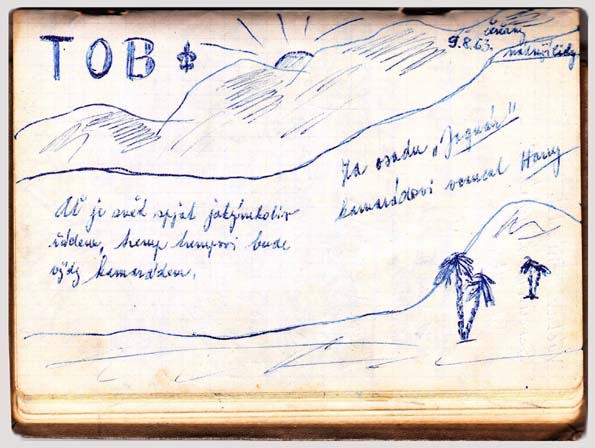 TOB
9.8.63.
Za osadu „Jaguár"
kamarádovi věnoval Harry
Ať je svět spjat jakýmkoliv
řádem, tramp trampovi bude
vždy kamarádem.